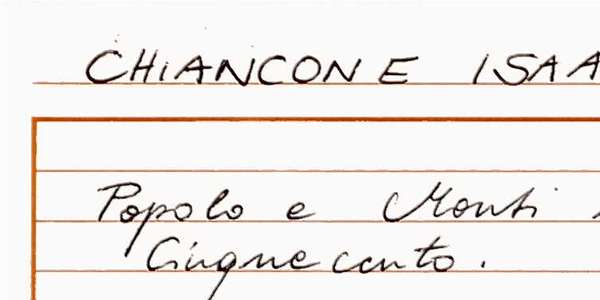 CHIANCONE ISAA
Popolo e Monti
Cinquecento.